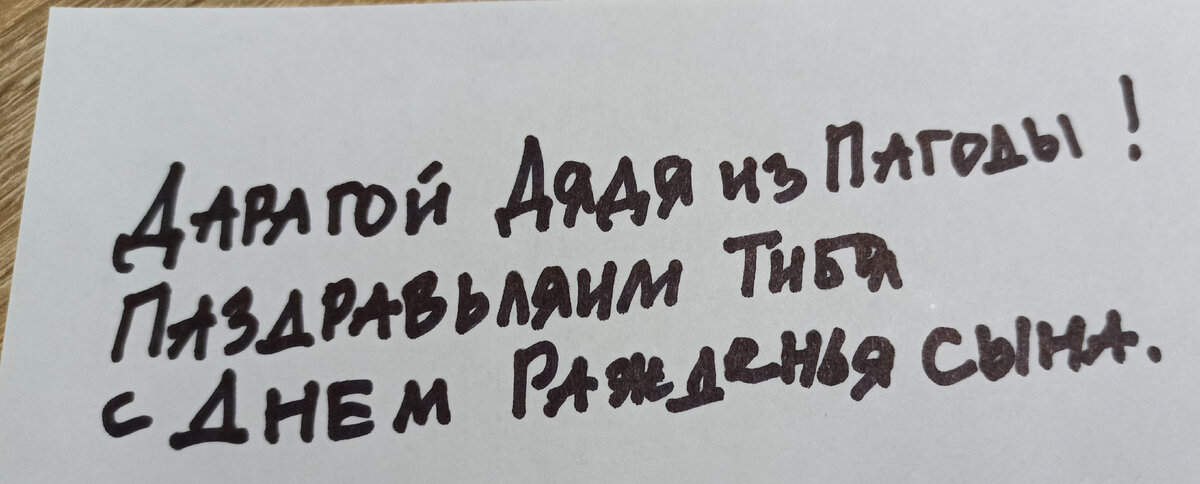 Дарагой Дядя из Пагоды!
Паздравьляим Тибя
с Днем Ражденья сына.